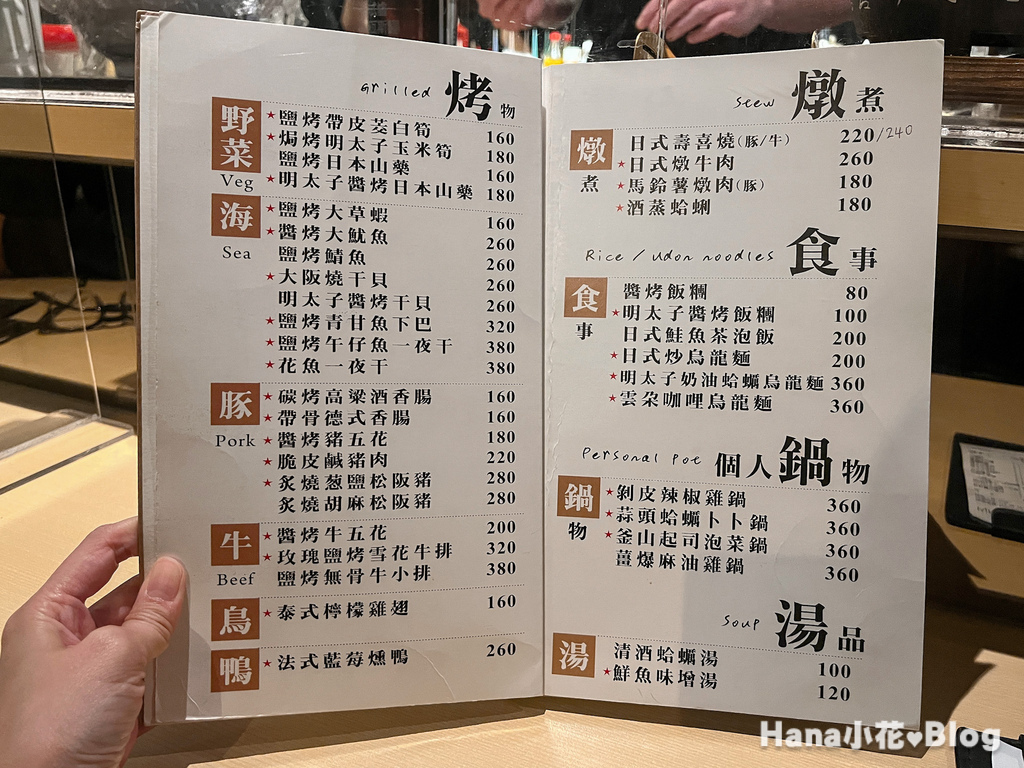 grilled 烤物
野菜 Veg
★鹽烤帶皮茭白筍 160
★焗烤明太子玉米筍 180
鹽烤日本山藥 160
★明太子醬烤日本山藥 180
海 Sea
★鹽烤大草蝦 160
★醬烤大魷魚 260
鹽烤鯖魚 260
★大阪燒干貝 260
明太子醬烤干貝 260
★鹽烤青甘魚下巴 320
★鹽烤午仔魚一夜干 380
★花魚一夜干 380
豚 Pork
★碳烤高粱酒香腸 160
★帶骨德式香腸 160
★醬烤豬五花 180
★脆皮鹹豬肉 220
★炙燒葱鹽松阪豬 280
炙燒胡麻松阪豬 280
牛 Beef
★醬烤牛五花 200
★玫瑰鹽烤雪花牛排 320
鹽烤無骨牛小排 380
鳥
★泰式檸檬雞翅 160
鴨
★法式藍莓燻鴨 260
stew 燉煮
燉煮
日式壽喜燒(豚/牛) 220/240
★日式燉牛肉 260
★馬鈴薯燉肉(豚) 180
★酒蒸蛤蜊 180
Rice / Udon noodles 食事
食事
醬烤飯糰 80
★明太子醬烤飯糰 100
日式鮭魚茶泡飯 200
★日式炒烏龍麵 200
★明太子奶油蛤蠣烏龍麵 360
★雲朵咖哩烏龍麵 360
Personal pot 個人鍋物
鍋物
★剝皮辣椒雞鍋 360
★蒜頭蛤蠣卜卜鍋 360
★釜山起司泡菜鍋 360
薑爆麻油雞鍋 360
Soup 湯品
湯
清酒蛤蠣湯 100
★鮮魚味增湯 120
Hana小花♥Blog